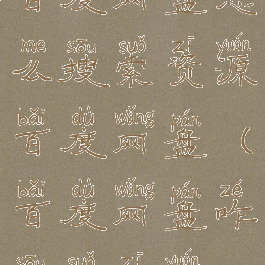 me sōu suǒ zī yuán
么搜索资源
bǎi dù wǎng pán
百度网盘（
bǎi dù wǎng pán zé
百度网盘咋
sōu suǒ zī yuán